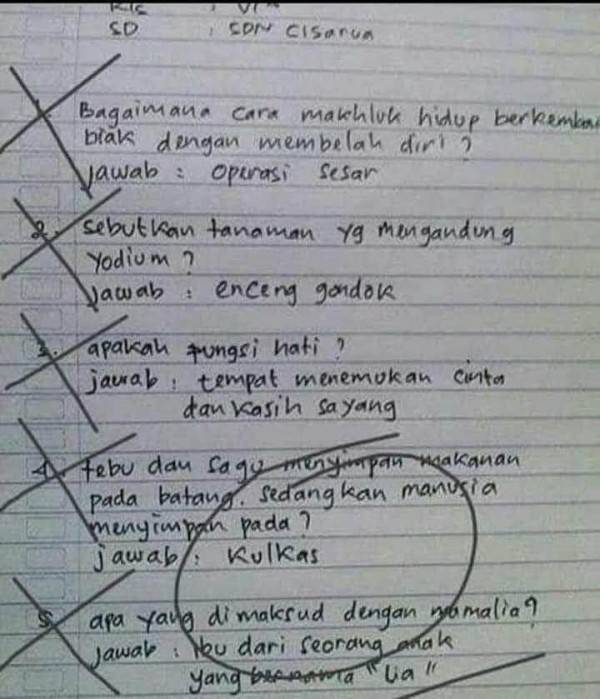 SD : SDN Cisarua
1. Bagaimana cara makhluk hidup berkembai
biak dengan membelah diri ?
Jawab : Operasi sesar
2. sebutkan tanaman yg mengandung
Yodium ?
Jawab : enceng gondok
3. apakah fungsi hati ?
jawab : tempat menemukan cinta
dan kasih sayang
4. tebu dan sagu menyimpan makanan
pada batang. sedangkan manusia
menyimpan pada ?
jawab : Kulkas
5. apa yang dimaksud dengan mamalia ?
Jawab : ibu dari seorang anak
yang bernama "Lia"